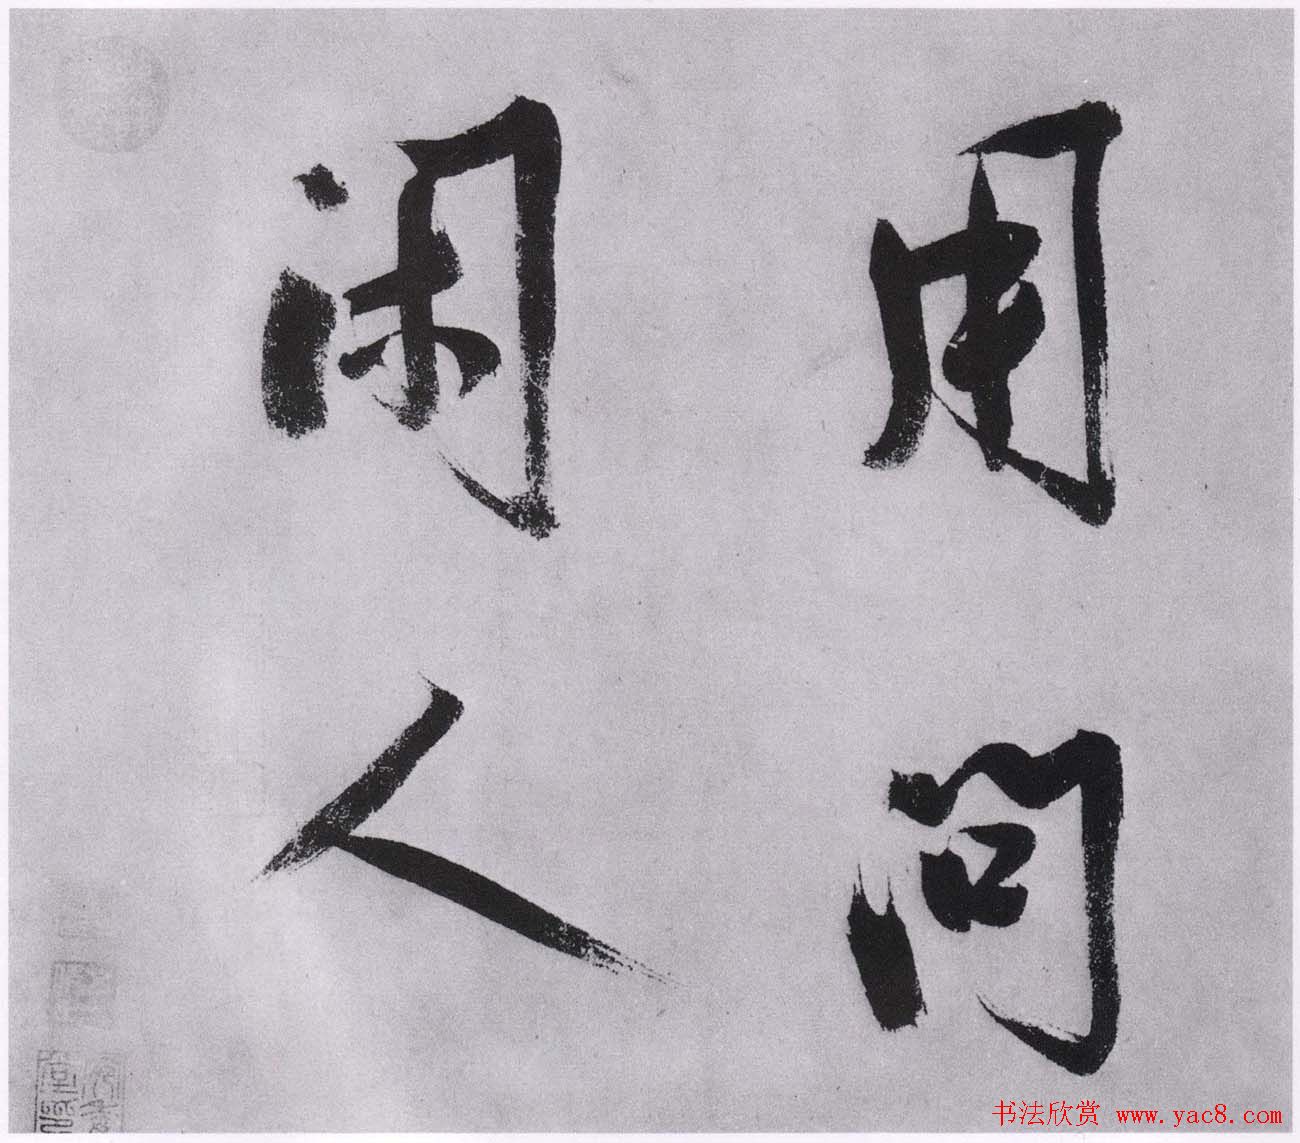 用问
闲人
书法欣赏 www.yac8.com